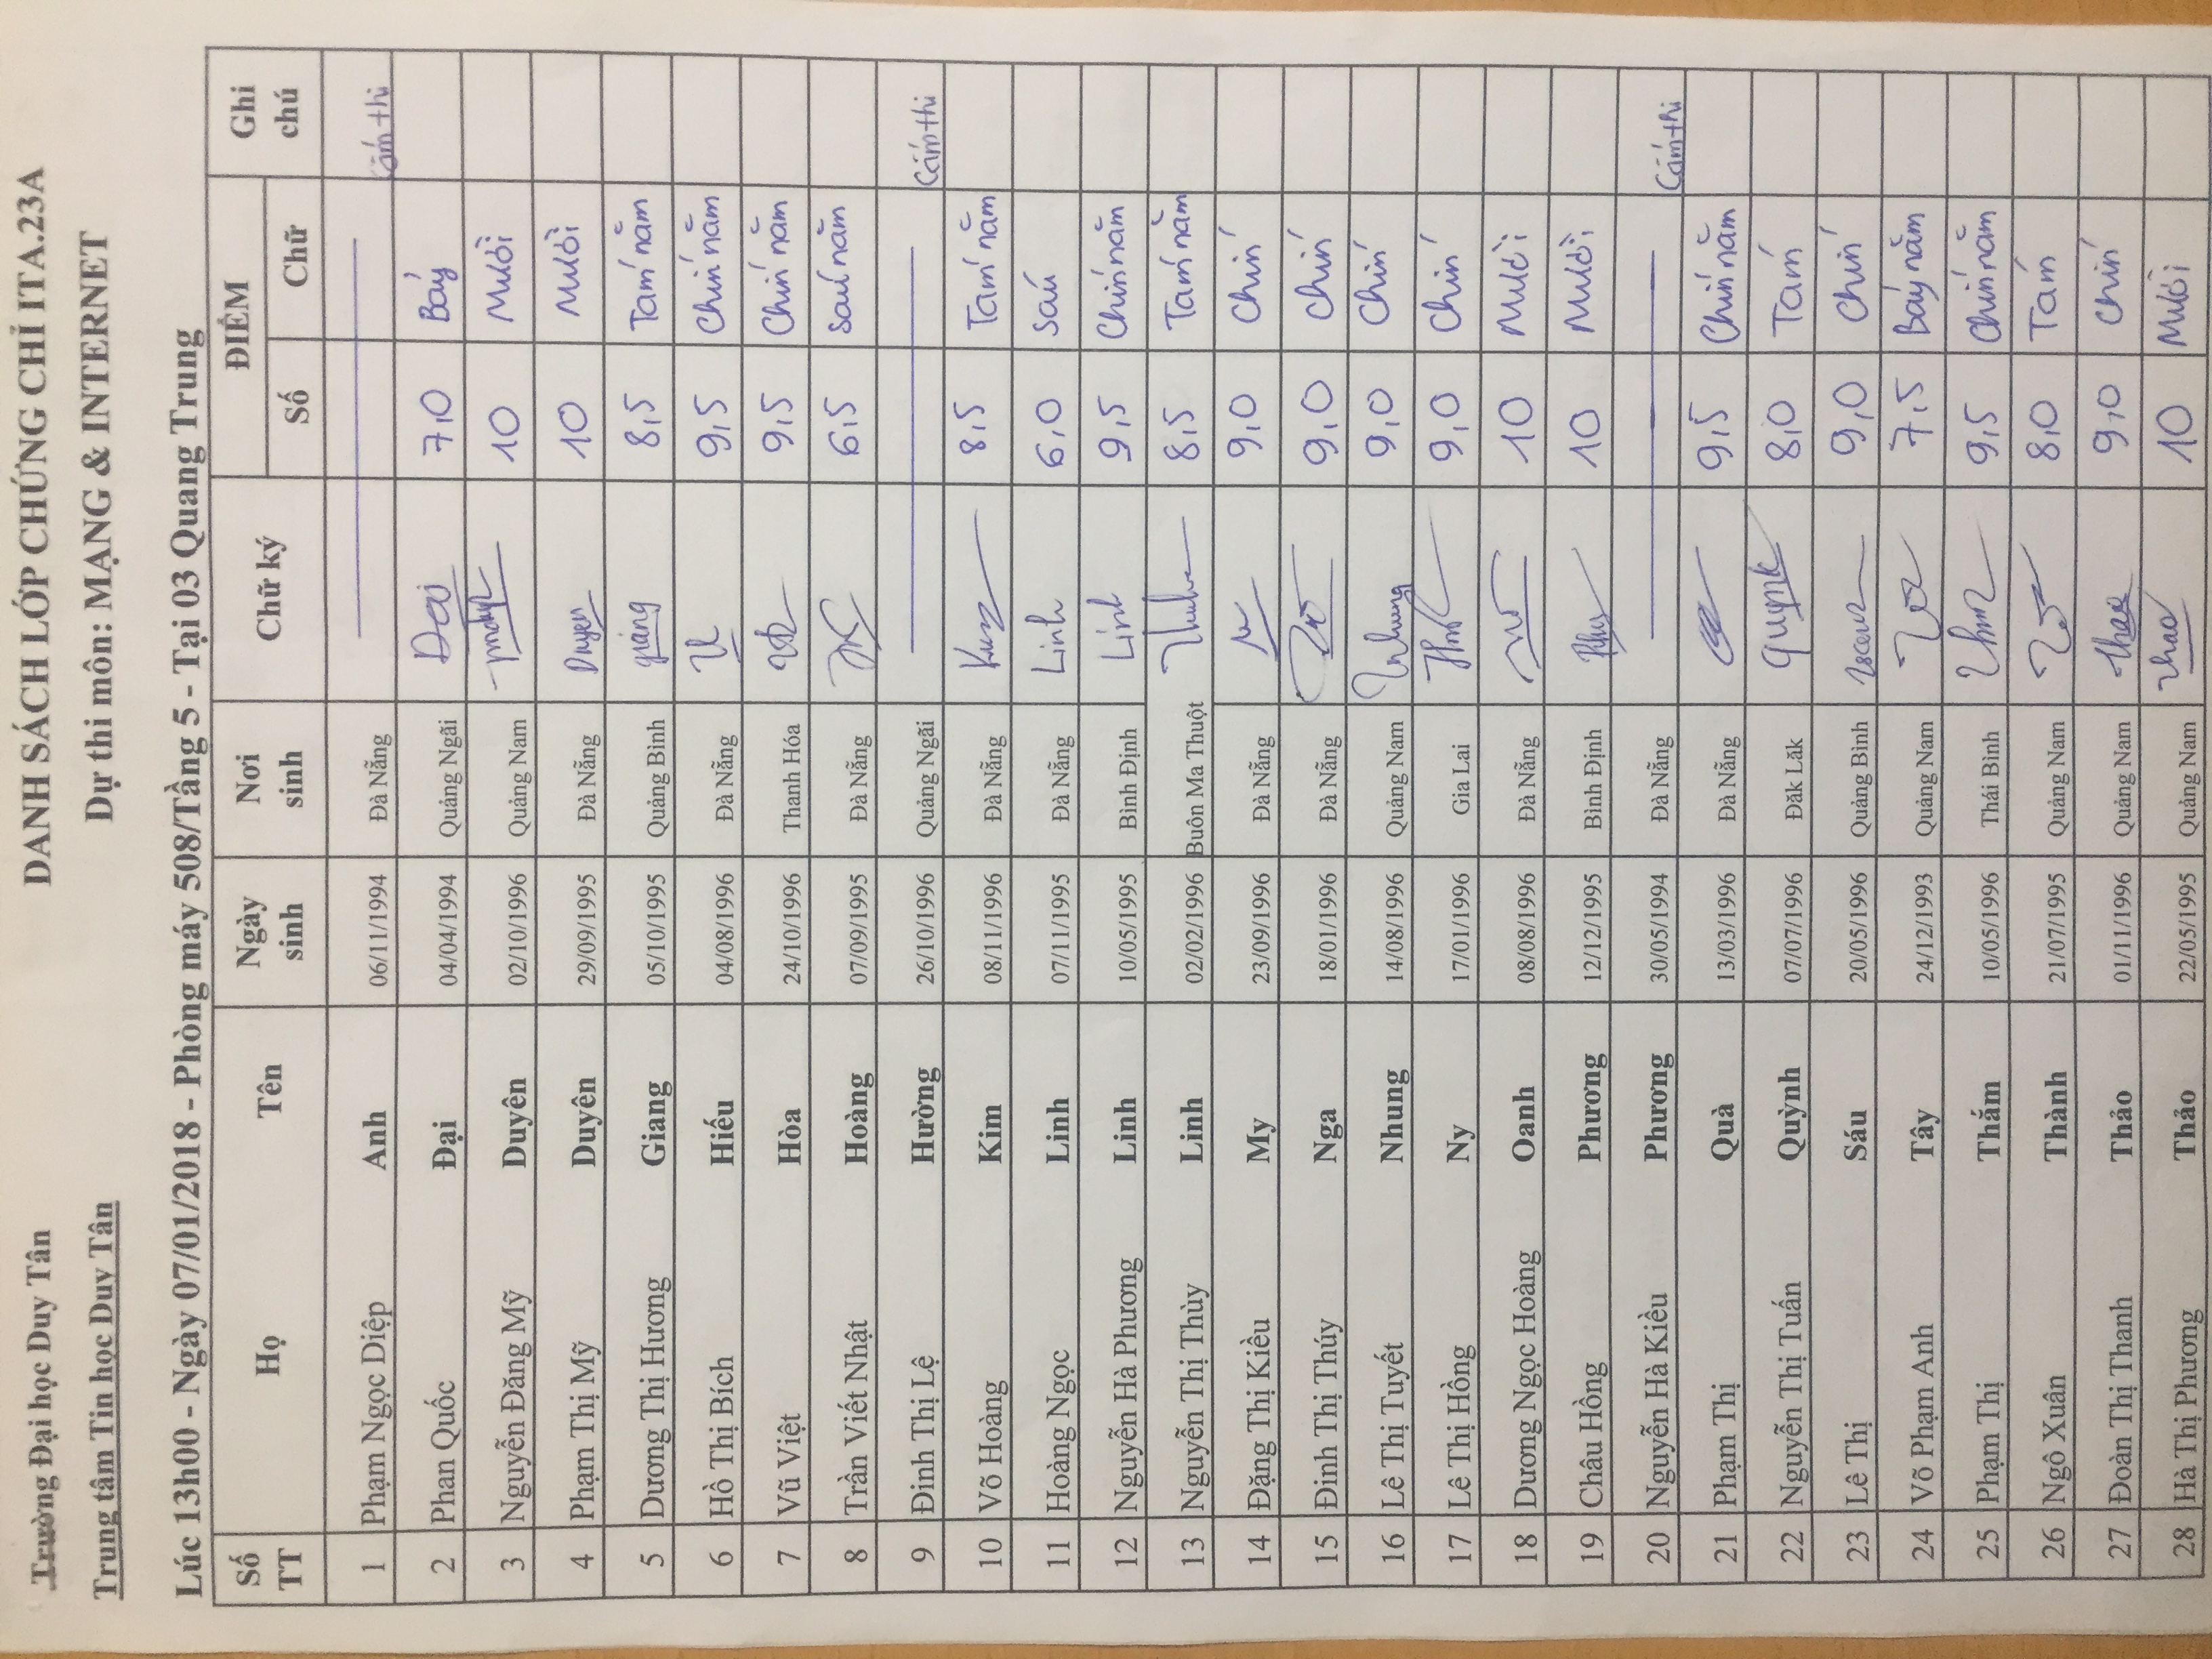 Trường Đại học Duy Tân
Trung tâm Tin học Duy Tân
DANH SÁCH LỚP CHỨNG CHỈ ITA.23A
Dự thi môn: MẠNG & INTERNET
Lúc 13h00 - Ngày 07/01/2018 - Phòng máy 508/Tầng 5 - Tại 03 Quang Trung
Số TT Họ Tên Ngày sinh Nơi sinh Chữ ký ĐIỂM Số Chữ Ghi chú
1 Phạm Ngọc Diệp Anh 06/11/1994 Đà Nẵng Cấm thi
2 Phan Quốc Đại 04/04/1994 Quảng Ngãi Đại 7,0 Bảy
3 Nguyễn Đăng Mỹ Duyên 02/10/1996 Quảng Nam 10 Mười
4 Phạm Thị Mỹ Duyên 29/09/1995 Đà Nẵng Duyen 10 Mười
5 Dương Thị Hương Giang 05/10/1995 Quảng Bình giang 8,5 Tám năm
6 Hồ Thị Bích Hiếu 04/08/1996 Đà Nẵng 9,5 Chín năm
7 Vũ Việt Hòa 24/10/1996 Thanh Hóa 9,5 Chín năm
8 Trần Viết Nhật Hoàng 07/09/1995 Đà Nẵng 6,5 Sáu năm
9 Đinh Thị Lệ Hường 26/10/1996 Quảng Ngãi Cấm thi
10 Võ Hoàng Kim 08/11/1996 Đà Nẵng 8,5 Tám năm
11 Hoàng Ngọc Linh 07/11/1995 Đà Nẵng Linh 6,0 Sáu
12 Nguyễn Hà Phương Linh 10/05/1995 Bình Định Linh 9,5 Chín năm
13 Nguyễn Thị Thùy Linh 02/02/1996 Buôn Ma Thuột 8,5 Tám năm
14 Đặng Thị Kiều My 23/09/1996 Đà Nẵng 9,0 Chín
15 Đinh Thị Thúy Nga 18/01/1996 Đà Nẵng 9,0 Chín
16 Lê Thị Tuyết Nhung 14/08/1996 Quảng Nam Nhung 9,0 Chín
17 Lê Thị Hồng Ny 17/01/1996 Gia Lai 9,0 Chín
18 Dương Ngọc Hoàng Oanh 08/08/1996 Đà Nẵng 10 Mười
19 Châu Hồng Phương 12/12/1995 Bình Định 10 Mười
20 Nguyễn Hà Kiều Phương 30/05/1994 Đà Nẵng Cấm thi
21 Phạm Thị Quà 13/03/1996 Đà Nẵng 9,5 Chín năm
22 Nguyễn Thị Tuấn Quỳnh 07/07/1996 Đăk Lăk Quynh 8,0 Tám
23 Lê Thị Sáu 20/05/1996 Quảng Bình 9,0 Chín
24 Võ Phạm Anh Tây 24/12/1993 Quảng Nam 7,5 Bảy năm
25 Phạm Thị Thắm 10/05/1996 Thái Bình 9,5 Chín năm
26 Ngô Xuân Thành 21/07/1995 Quảng Nam 8,0 Tám
27 Đoàn Thị Thanh Thảo 01/11/1996 Quảng Nam thao 9,0 Chín
28 Hà Thị Phương Thảo 22/05/1995 Quảng Nam thao 10 Mười